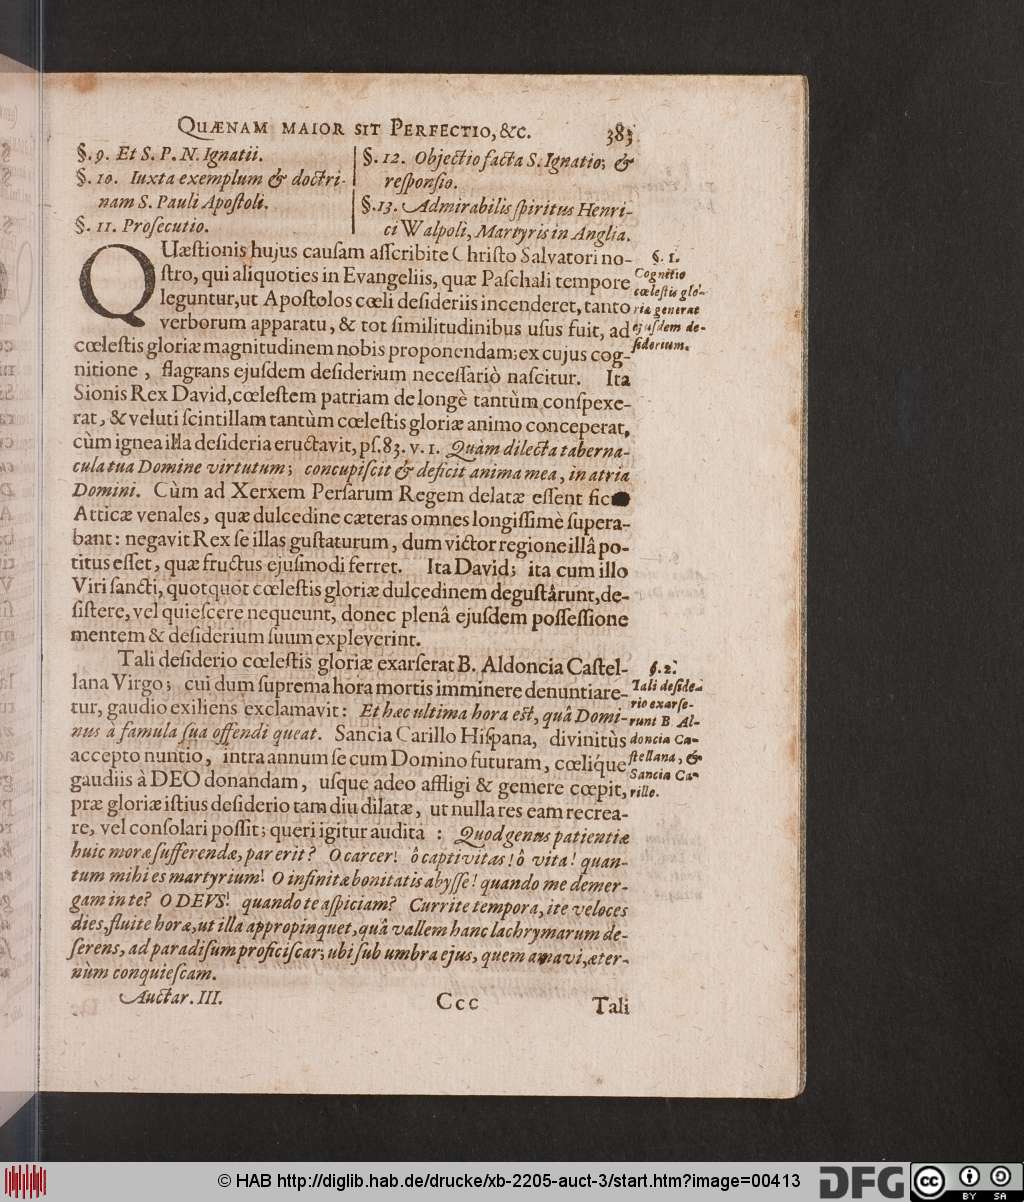 QUÆNAM MAIOR SIT PERFECTIO, &c. 383
§. 9. Et S. P. N. Ignatii.
§. 10. Iuxta exemplum & doctri-
nam S. Pauli Apoſtoli.
§. 11. Proſecutio.
§. 12. Objectio facta S. Ignatio; &
reſponſio.
§. 13. Admirabilis ſpiritus Henri-
ci Walpoli, Martyris in Anglia.
QUæſtionis hujus cauſam aſſcribite Chriſto Salvatori no-
ſtro, qui aliquoties in Evangeliis, quæ Paſchali tempore
leguntur, ut Apoſtolos cœli deſideriis incenderet, tanto
verborum apparatu, & tot ſimilitudinibus uſus fuit, ad
cœleſtis gloriæ magnitudinem nobis proponendam; ex cujus cog-
nitione, flagrans ejuſdem deſiderium neceſſariò naſcitur. Ita
Sionis Rex David, cœleſtem patriam de longè tantùm conſpexe-
rat, & veluti ſcintillam tantùm cœleſtis gloriæ animo conceperat,
cùm ignea illa deſideria eructavit, pſ. 83. v. 1. Quàm dilecta taberna-
cula tua Domine virtutum; concupiſcit & deficit anima mea, in atria
Domini. Cùm ad Xerxem Perſarum Regem delatæ eſſent fic
Atticæ venales, quæ dulcedine cæteras omnes longiſſimè ſupera-
bant: negavit Rex ſe illas guſtaturum, dum victor regione illâ po-
titus eſſet, quæ fructus ejuſmodi ferret. Ita David; ita cum illo
Viri ſancti, quotquot cœleſtis gloriæ dulcedinem deguſtârunt, de-
ſiſtere, vel quieſcere nequeunt, donec plenâ ejuſdem poſſeſſione
mentem & deſiderium ſuum expleverint.
Tali deſiderio cœleſtis gloriæ exarſerat B. Aldoncia Caſtel-
lana Virgo; cui dum ſuprema hora mortis imminere denuntiare-
tur, gaudio exiliens exclamavit: Et hæc ultima hora eſt, quâ Domi-
nus à famula ſua offendi queat. Sancia Carillo Hiſpana, divinitùs
accepto nuntio, intra annum ſe cum Domino futuram, cœlique
gaudiis à DEO donandam, uſque adeo affligi & gemere cœpit,
præ gloriæ iſtius deſiderio tam diu dilatæ, ut nulla res eam recrea-
re, vel conſolari poſſit; queri igitur audita : Quod genus patientiæ
huic moræ ſufferendæ, par erit? O carcer! ô captivitas! ô vita! quan-
tum mihi es martyrium! O infinitæ bonitatis abyſſe! quando me demer-
gam in te? O DEVS! quando te aſpiciam? Currite tempora, ite veloces
dies, fluite horæ, ut illa appropinquet, quâ vallem hanc lachrymarum de-
ſerens, ad paradiſum proficiſcar; ubi ſub umbra ejus, quem amavi, æter-
num conquieſcam.
§. 1.
Cognitio
cœleſtis glo-
riæ generat
ejuſdem de-
ſiderium.
§. 2.
Tali deſide-
rio exarſe-
runt B. Al-
doncia Ca-
ſtellana, &
Sancia Ca-
rillo.
Auctar. III. Ccc Tali
© HAB http://diglib.hab.de/drucke/xb-2205-auct-3/start.htm?image=00413
DFG
cc BY SA